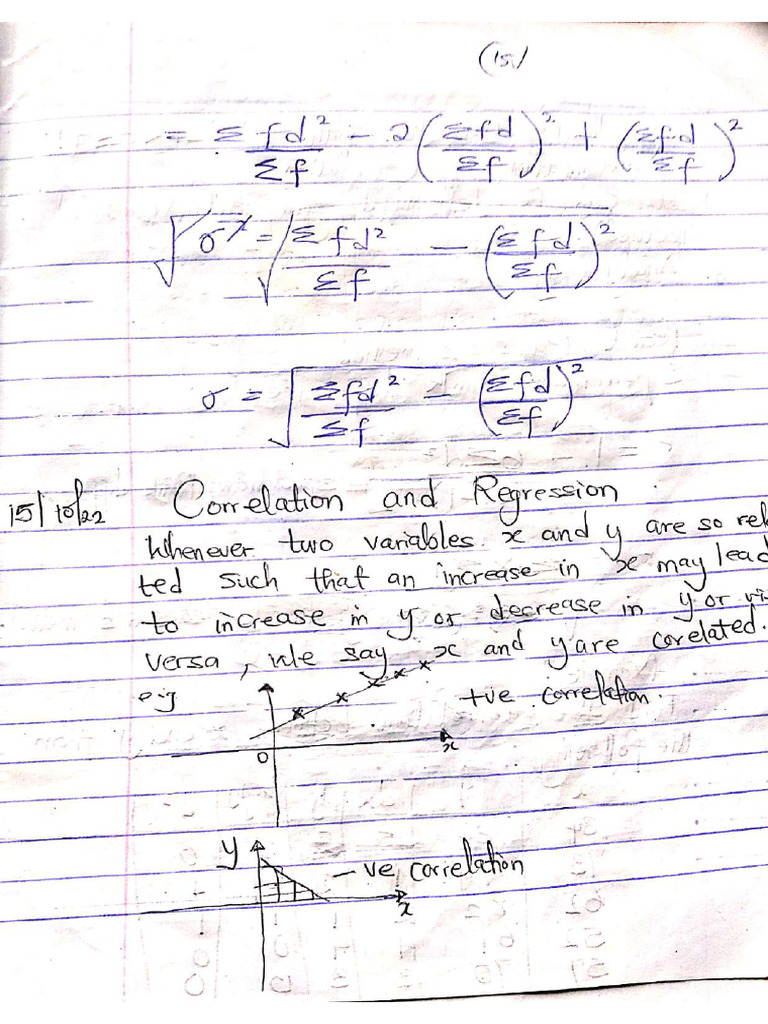 (15)
= Σfd²/Σf - 2(Σfd/Σf)² + (Σfd/Σf)²
√σ² = √Σfd²/Σf - (Σfd/Σf)²
σ = √Σfd²/Σf - (Σfd/Σf)²
15/10/22 Correlation and Regression.
Whenever two variables x and y are so rela
ted such that an increase in x may lead
to increase in y or decrease in y or vi
versa, We say x and y are corelated.
e.g +ve correlation.
0 x
y -ve correlation
x